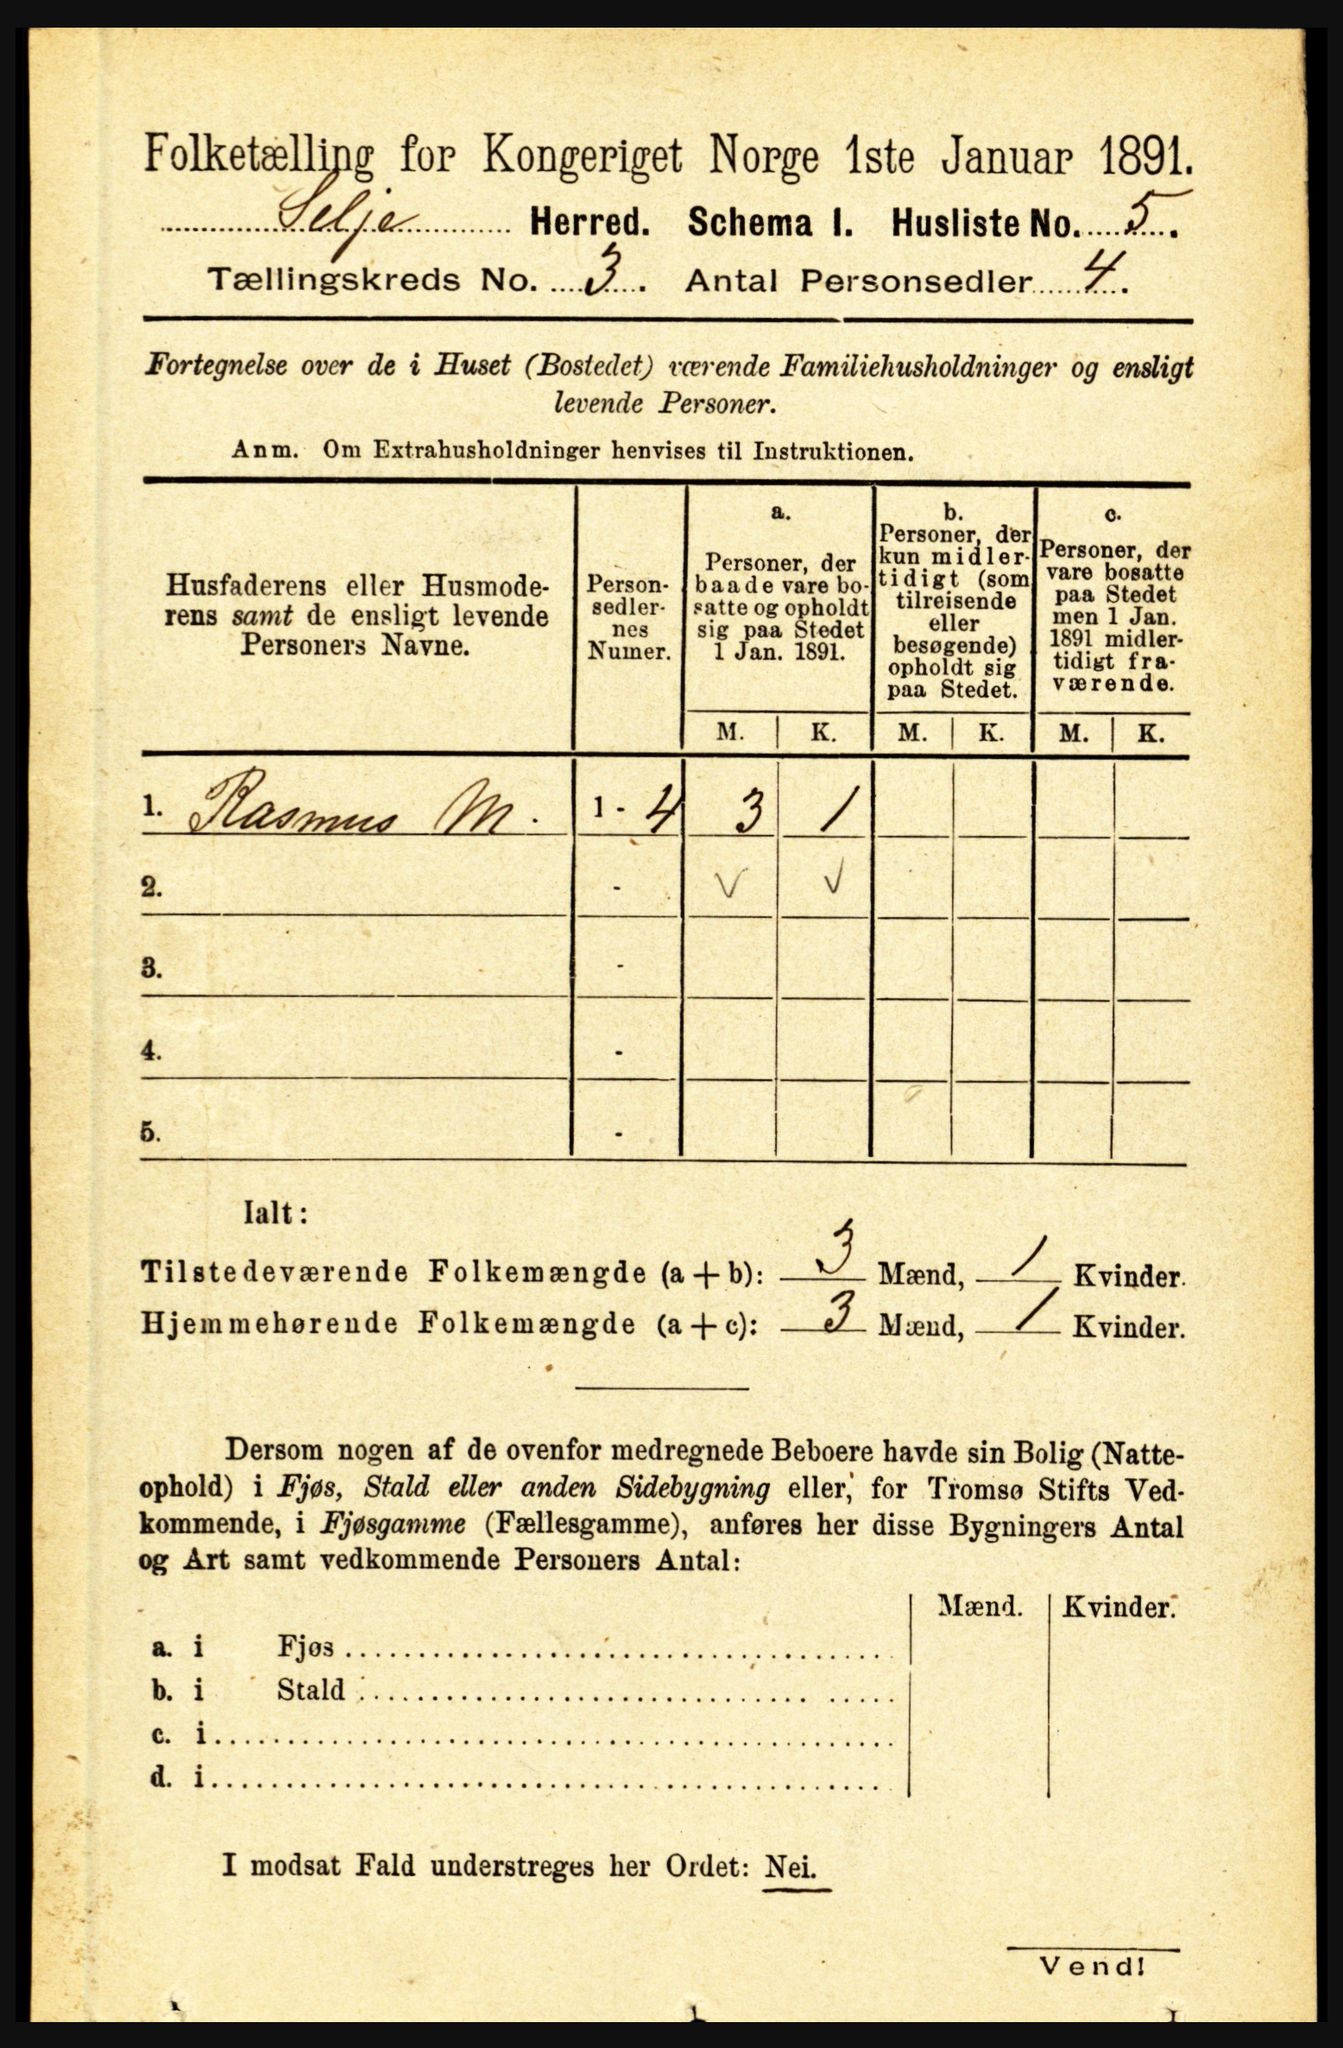 Folketælling for Kongeriget Norge 1ste Januar 1891.
Selje Herred. Schema I. Husliste No. 5.
Tællingskreds No. 3. Antal Personsedler 4.
Fortegnelse over de i Huset (Bostedet) værende Familiehusholdninger og ensligt
levende Personer.
Anm. Om Extrahusholdninger henvises til Instruktionen.
Husfaderens eller Husmode-
rens samt de ensligt levende
Personers Navne.
Person-
sedler-
nes
Numer.
a.
Personer, der
baade vare bo-
satte og opholdt
sig paa Stedet
1 Jan. 1891.
b.
Personer, der
kun midler-
tidigt (som
tilreisende
eller
besøgende)
opholdt sig
paa Stedet.
c.
Personer, der
vare bosatte
paa Stedet
men 1 Jan.
1891 midler-
tidigt fra-
værende.
M. K. M. K. M. K.
1. Rasmus M. 1 - 4 3 1
2. - V V
3. -
4. -
5. -
Ialt:
Tilstedeværende Folkemængde (a + b): 3 Mænd, 1 Kvinder.
Hjemmehørende Folkemængde (a + c): 3 Mænd, 1 Kvinder.
Dersom nogen af de ovenfor medregnede Beboere havde sin Bolig (Natte-
ophold) i Fjøs, Stald eller anden Sidebygning eller, for Tromsø Stifts Ved-
kommende, i Fjøsgamme (Fællesgamme), anføres her disse Bygningers Antal
og Art samt vedkommende Personers Antal:
Mænd. Kvinder.
a. i Fjøs
b. i Stald
c. i
d. i
I modsat Fald understreges her Ordet: Nei.
Vend!